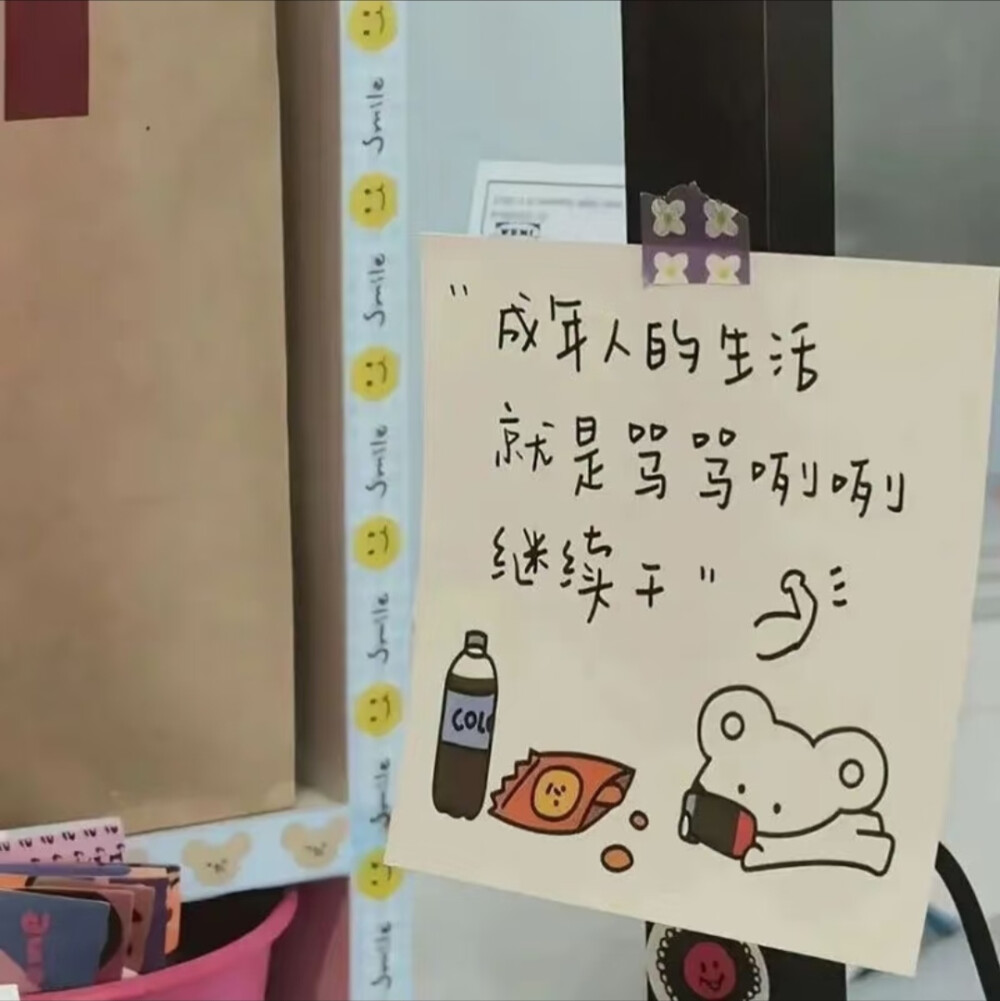 “成年人的生活
就是骂骂咧咧
继续干”
COL
smile
smile
smile
smile
smile
smile